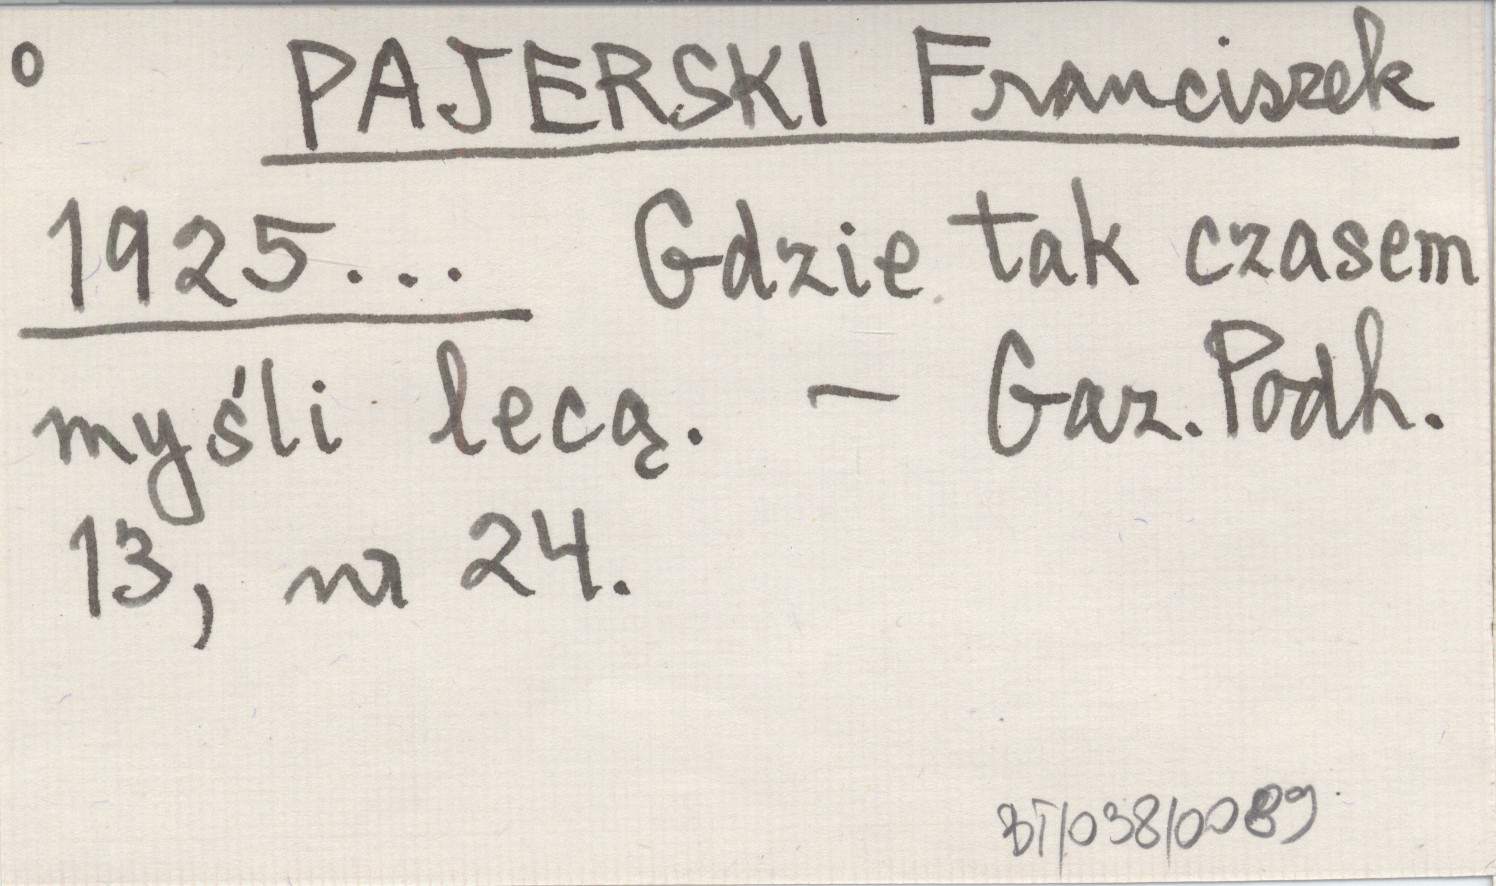 o PAJERSKI Franciszek
1925... Gdzie tak czasem
myśli lecą. – Gaz. Podh.
13, nr 24.
BT/038/0089